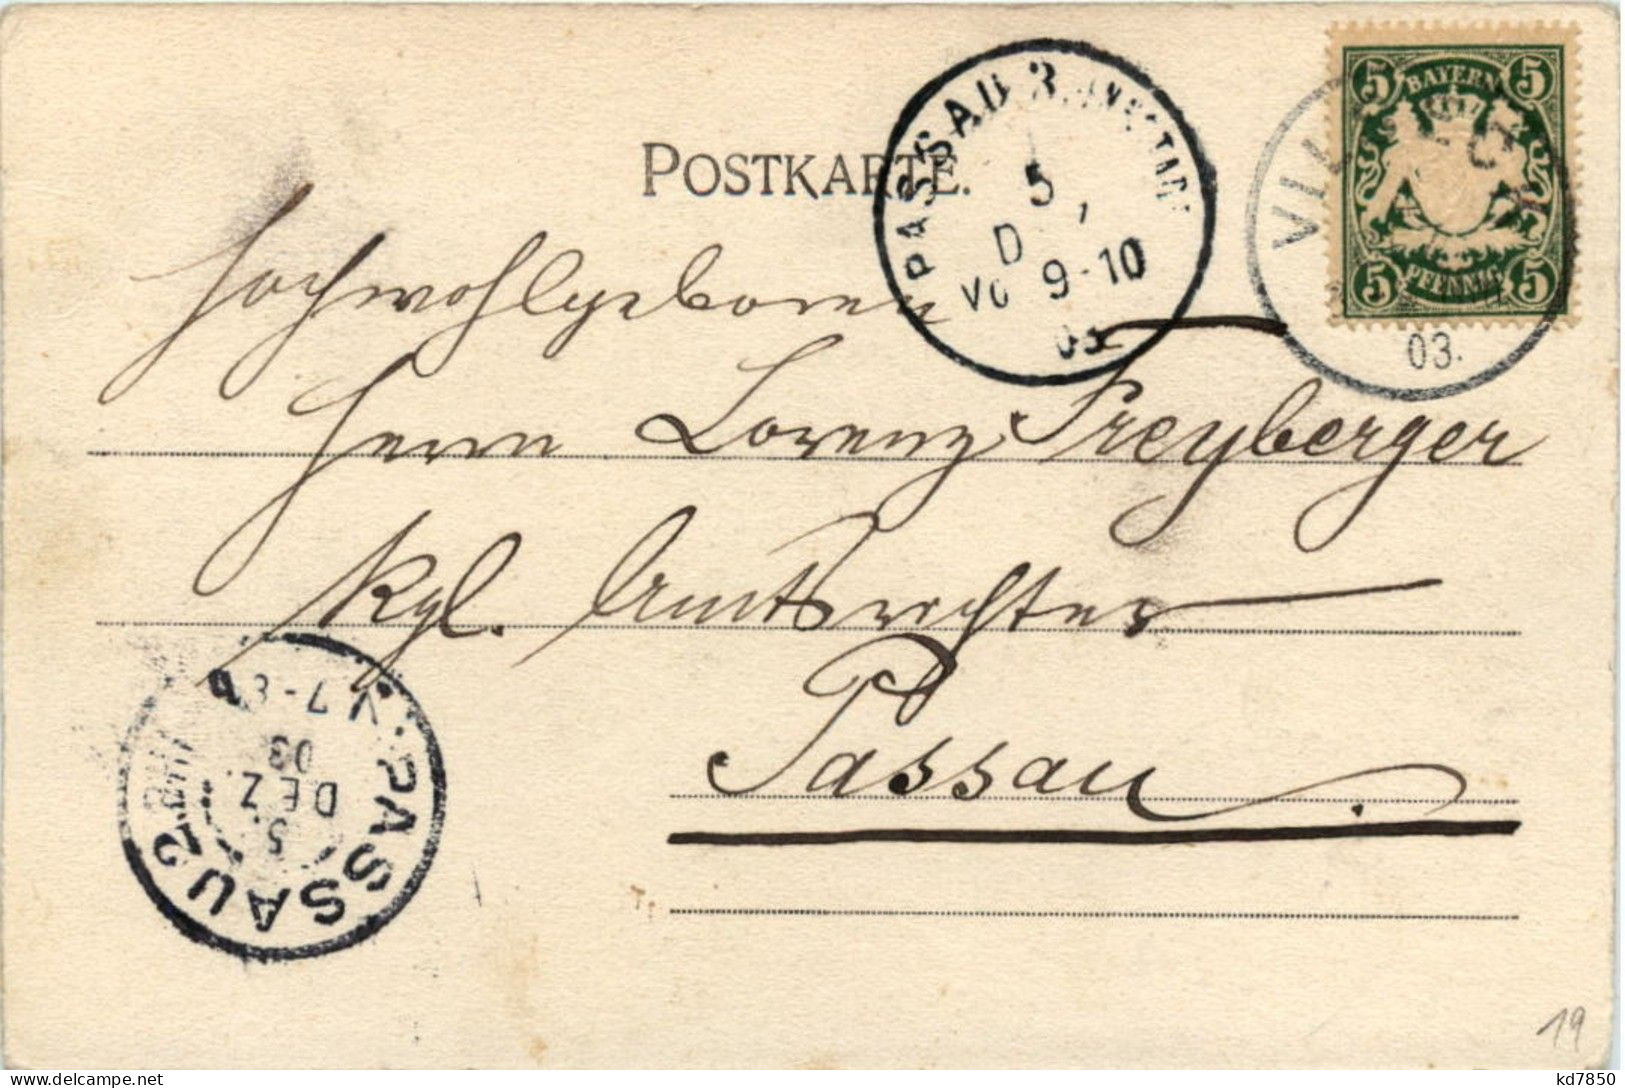 POSTKARTE.
PASSAU 3.
5
D
9-10
03
VIL
03.
5 BAYERN 5
5 PFENNIG 5
Hochwohlgeboren
Herrn Lorenz Freyberger
kgl. Amtsrichter
Passau.
PASSAU 2
5
DEZ.
03
V. 7-8
19
kd7850